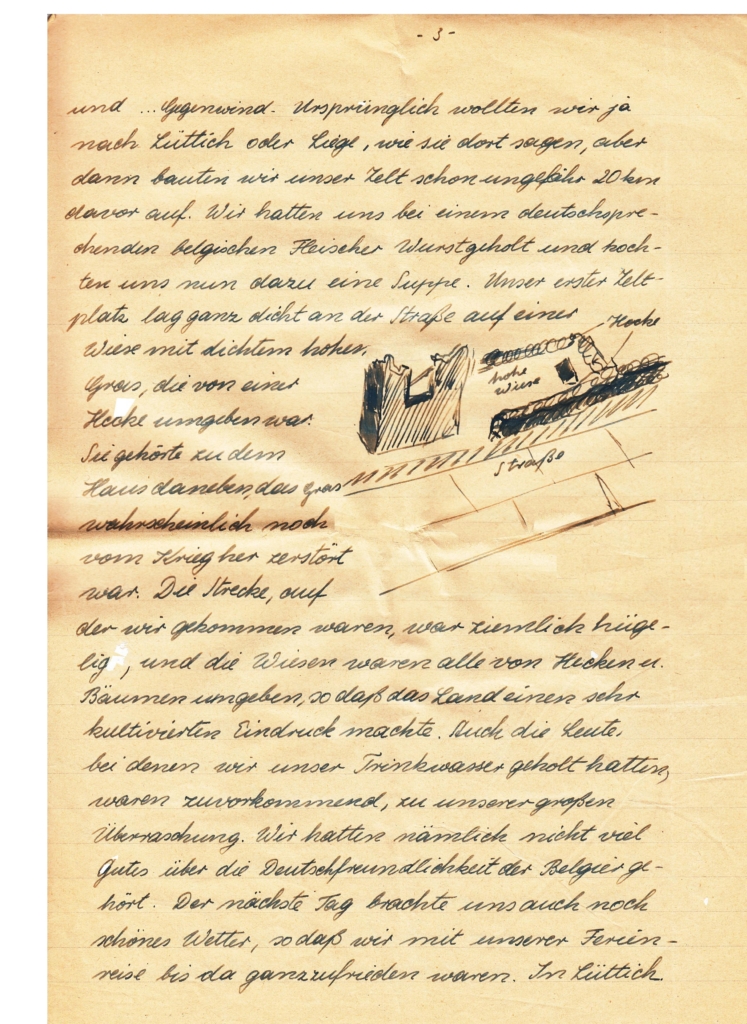 - 3 -
und ... Gegenwind. Ursprünglich wollten wir ja
nach Lüttich oder Liège, wie sie dort sagen, aber
dann bauten wir unser Zelt schon ungefähr 20 km
davor auf. Wir hatten uns bei einem deutschspre-
chenden belgischen Fleischer Wurst geholt und koch-
ten uns nun dazu eine Suppe. Unser erster Zelt-
platz lag ganz dicht an der Straße auf einer
Hecke
Wiese mit dichtem hohen
hohe
Wiese
Gras, die von einer
Hecke umgeben war.
Sie gehörte zu dem
Straße
Haus daneben, das
wahrscheinlich noch
vom Krieg her zerstört
war. Die Strecke, auf
der wir gekommen waren, war ziemlich hüge-
lig, und die Wiesen waren alle von Hecken u.
Bäumen umgeben, so daß das Land einen sehr
kultivierten Eindruck machte. Auch die Leute,
bei denen wir unser Trinkwasser geholt hatten,
waren zuvorkommend, zu unserer großen
Überraschung. Wir hatten nämlich nicht viel
Gutes über die Deutschfreundlichkeit der Belgier ge-
hört. Der nächste Tag brachte uns auch noch
schönes Wetter, so daß wir mit unserer Ferien-
reise bis da ganz zufrieden waren. In Lüttich